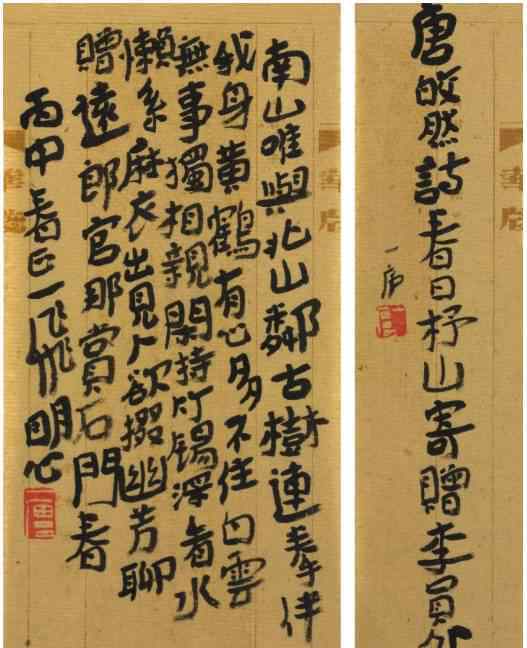 唐皎然詩春日杼山寄贈李員
南山唯與北山鄰古樹連拳伴
我身黃鶴有心多不住白雲
無事獨相親閑持竹錫深看水
懶系麻衣出見人欲掇幽芳聊
贈遠郎官那賞石門春
丙申春正一作明心